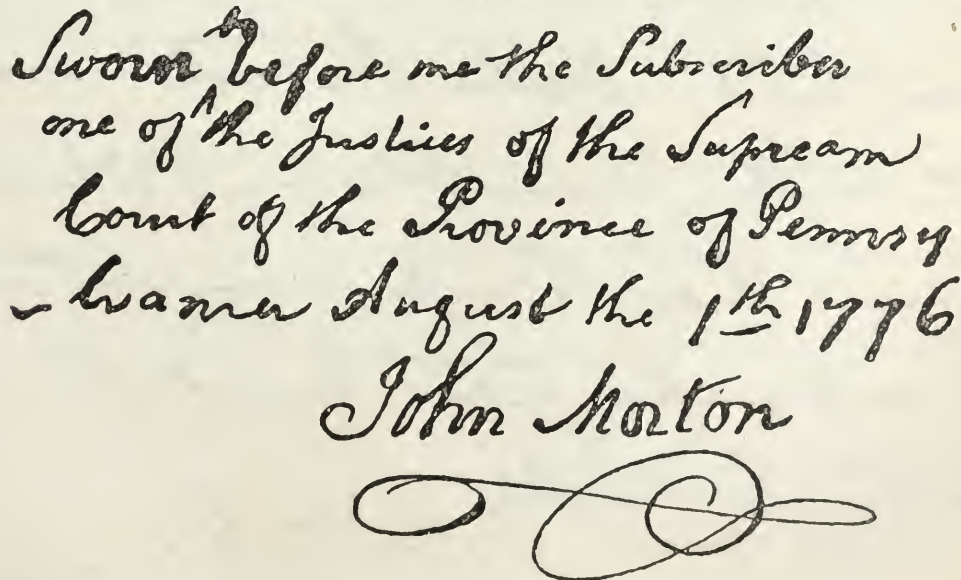 Sworn to before me the Subscriber
one of the Justices of the Supream
Court of the Province of Pennsy
-lvania August the 1th 1776
John Morton